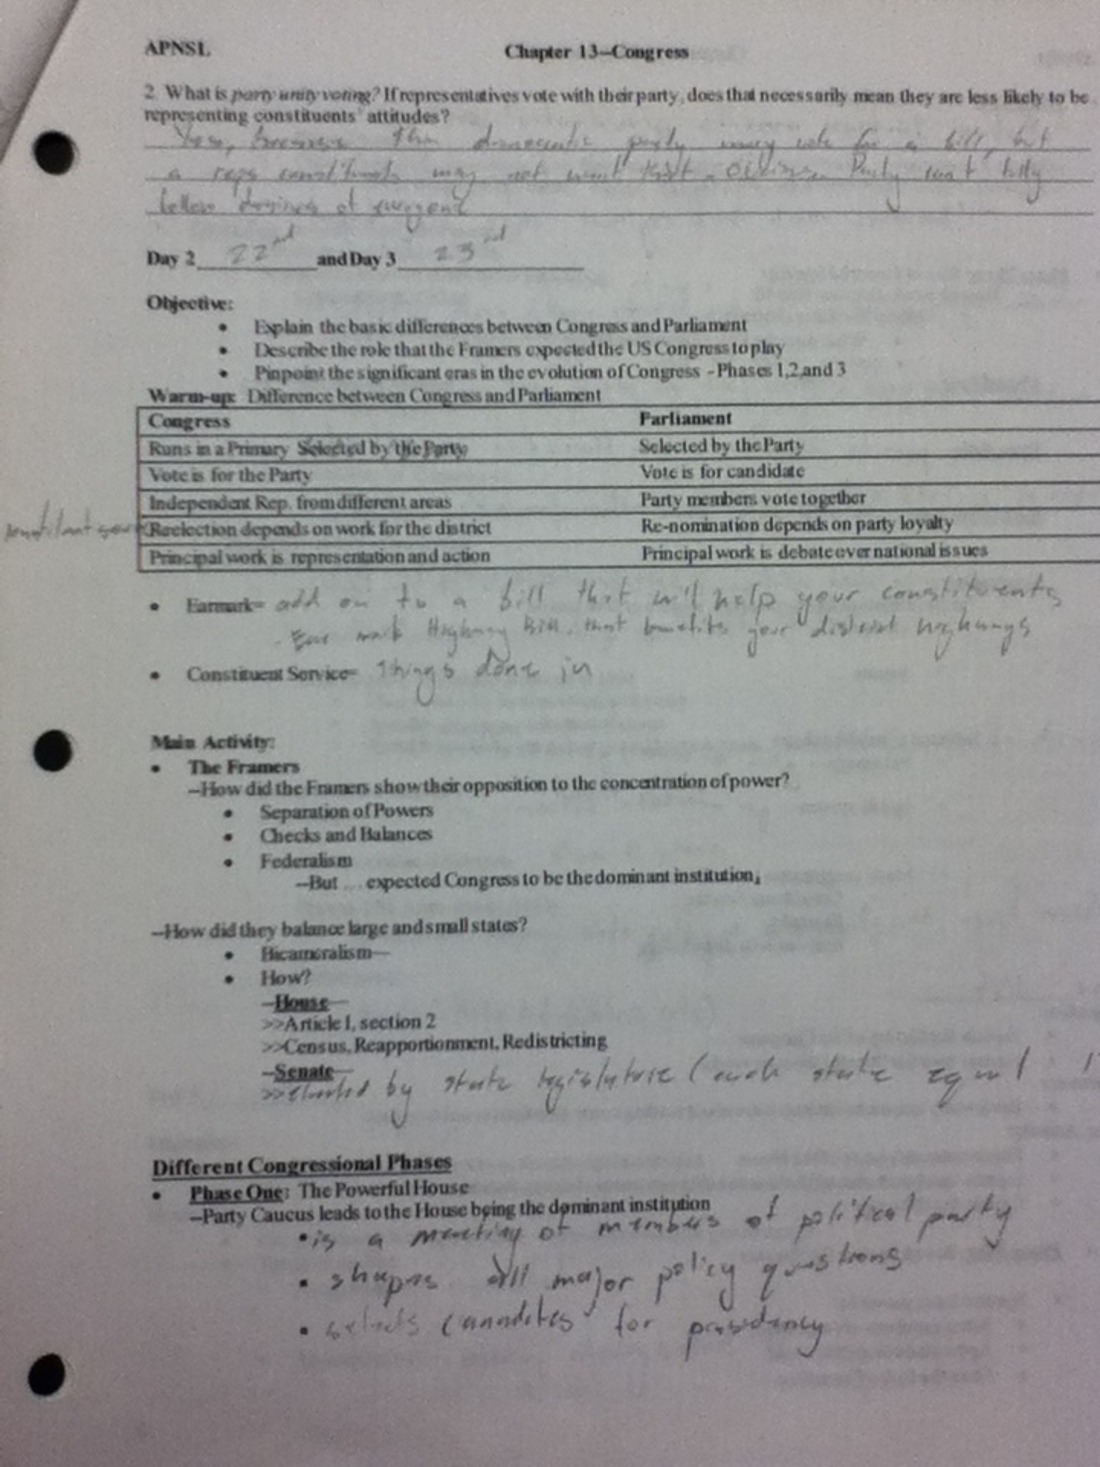 APNSL Chapter 13–Congress
2. What is party unity voting? If representatives vote with their party, does that necessarily mean they are less likely to be
representing constituents' attitudes?
Yes, because the democratic party may vote for a bill, but
a reps constituents may not want that. Party cant fully
follow desires of
Day 2 22nd and Day 3 23rd
Objective:
• Explain the basic differences between Congress and Parliament
• Describe the role that the Framers expected the US Congress to play
• Pinpoint the significant eras in the evolution of Congress – Phases 1,2,and 3
Warm-up: Difference between Congress and Parliament
Congress Parliament
Runs in a Primary Selected by the Party Selected by the Party
Vote is for the Party Vote is for candidate
Independent Rep. from different areas Party members vote together
Reelection depends on work for the district Re-nomination depends on party loyalty
Principal work is representation and action Principal work is debate over national issues
• Earmark= add on to a bill that will help your constituents
- Ear mark Highway Bill, that benefits your district highways
• Constituent Service= things done in
Main Activity:
• The Framers
–How did the Framers show their opposition to the concentration of power?
• Separation of Powers
• Checks and Balances
• Federalism
–But … expected Congress to be the dominant institution,
–How did they balance large and small states?
• Bicameralism—
• How?
–House—
>>Article I, section 2
>>Census, Reapportionment, Redistricting
–Senate—
>>elected by state legislature (each state equal
Different Congressional Phases
• Phase One: The Powerful House
–Party Caucus leads to the House being the dominant institution
• is a meeting of members of political party
• shapes all major policy questions
• selects canndites for presidency